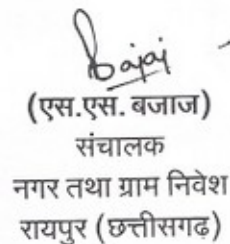 Bajaj
(एस.एस. बजाज)
संचालक
नगर तथा ग्राम निवेश
रायपुर (छत्तीसगढ़)